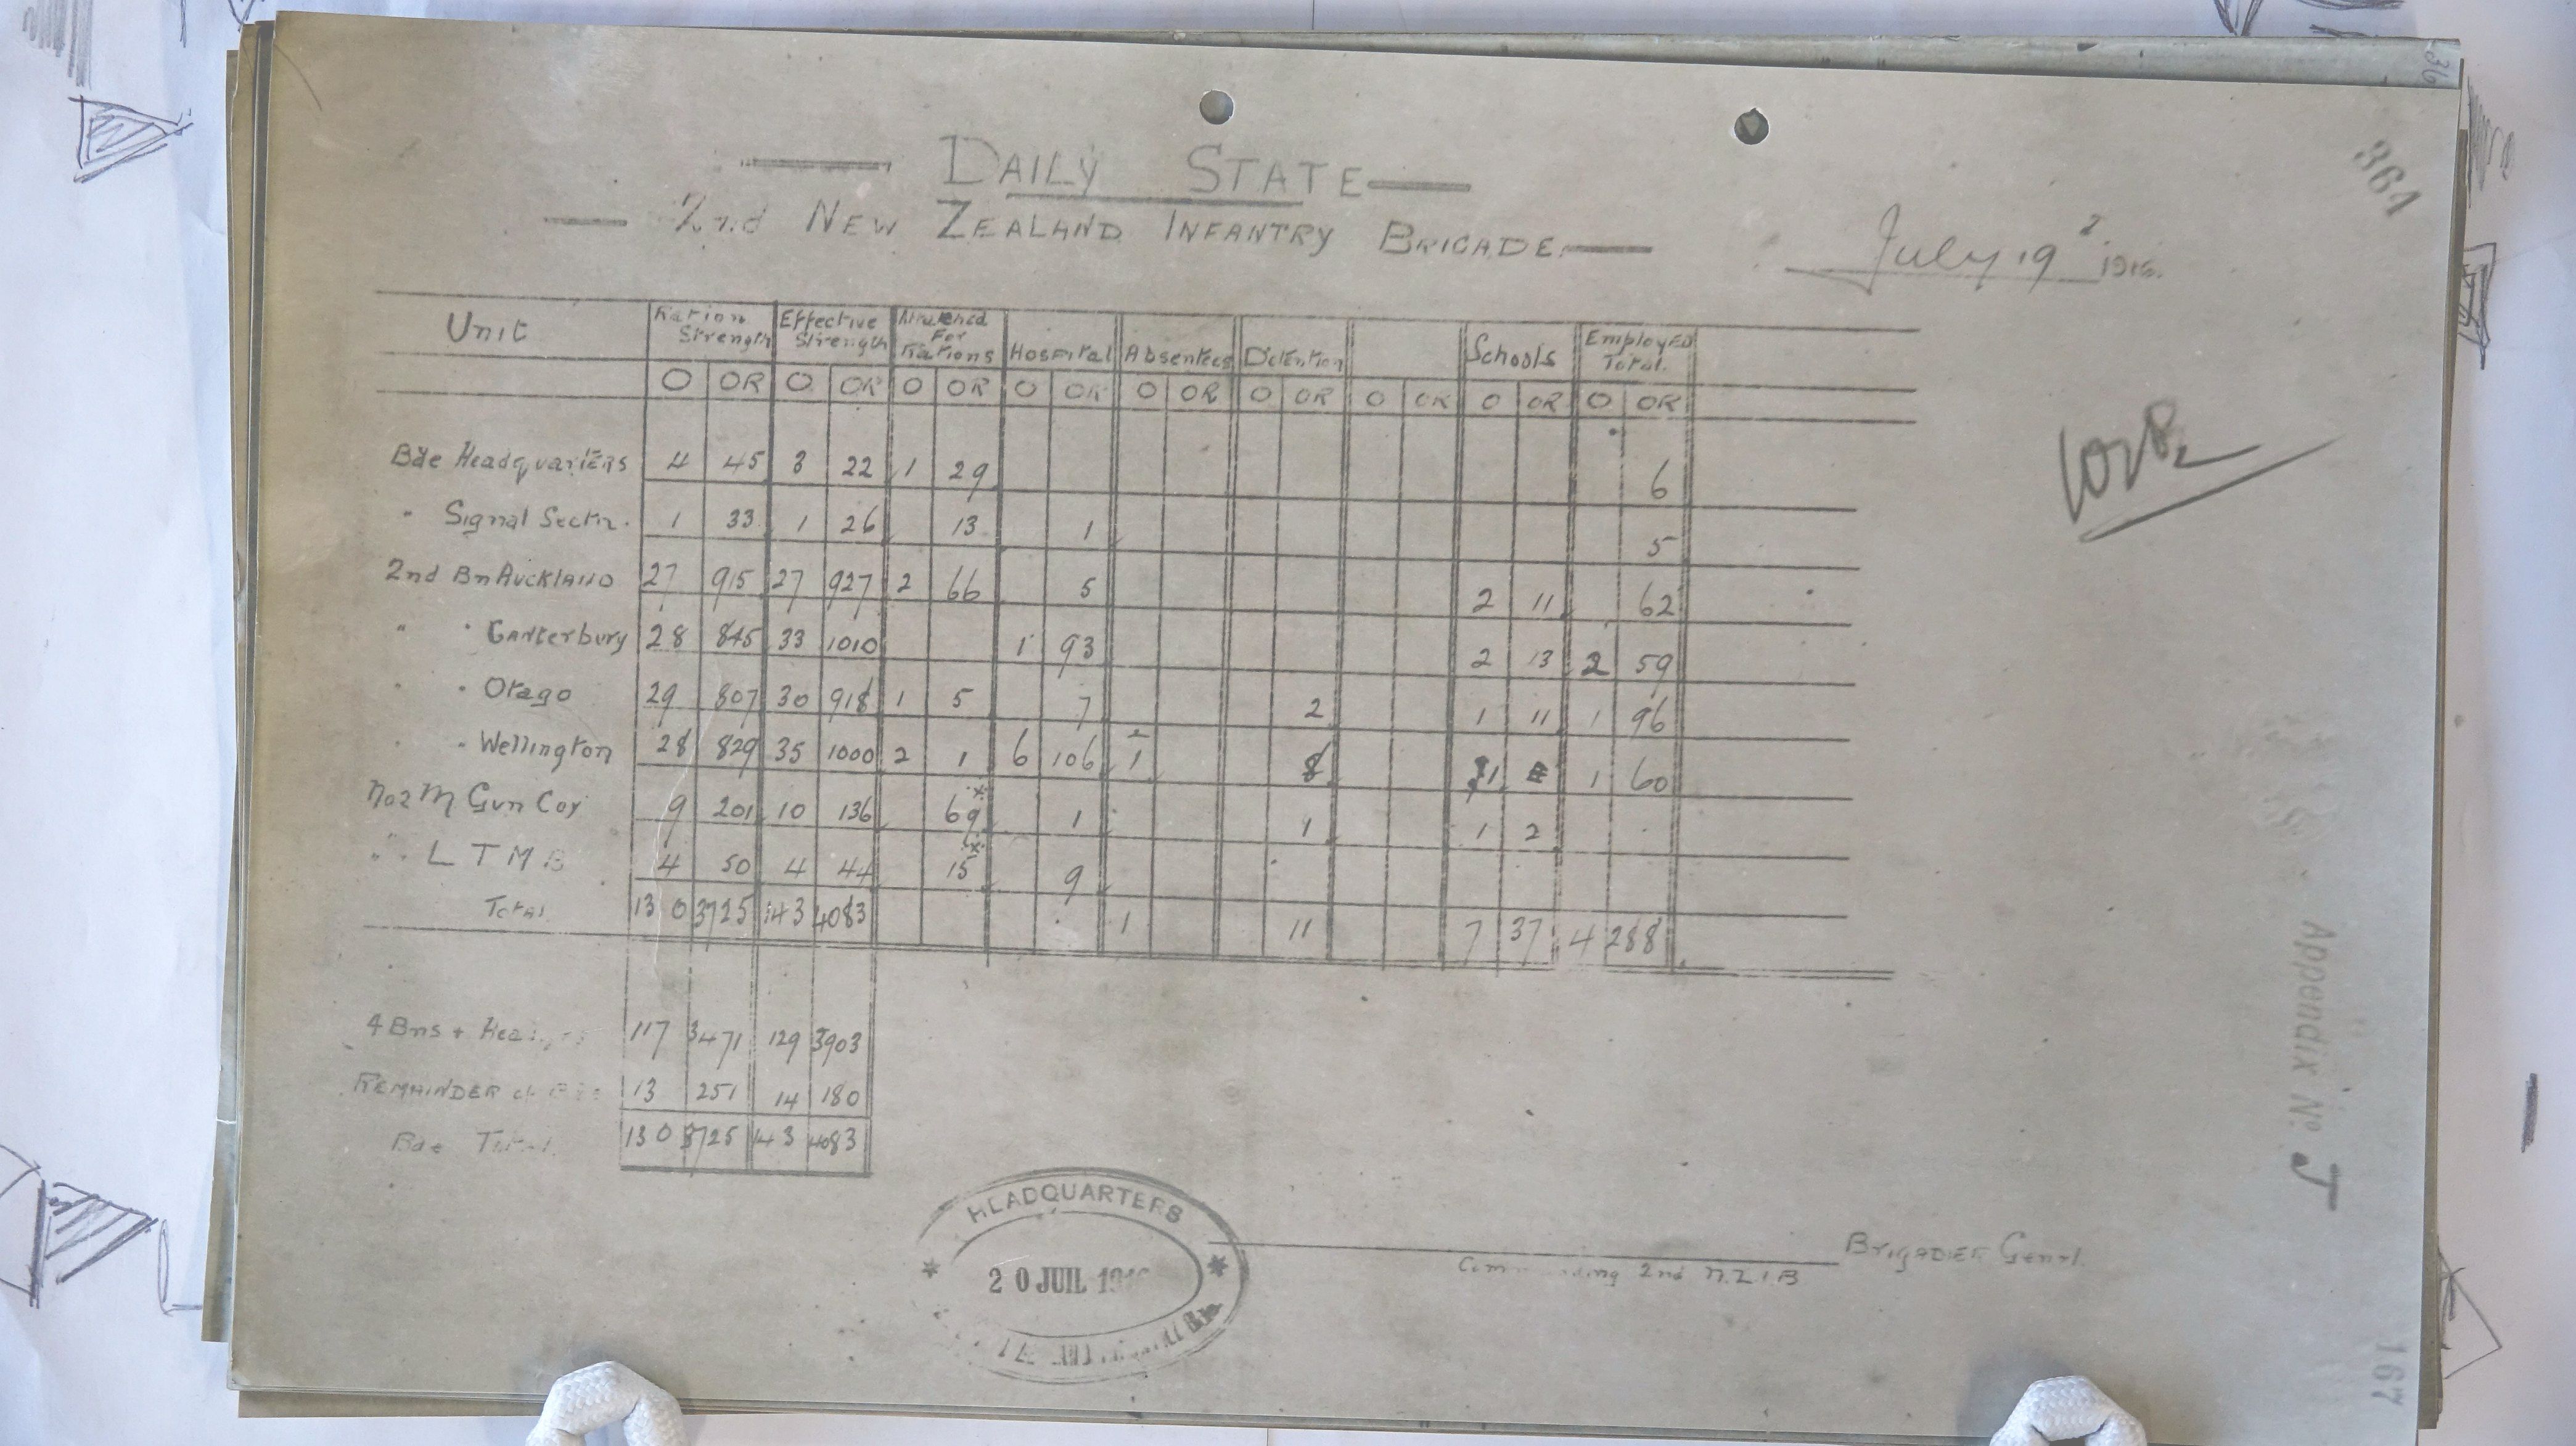 DAILY STATE
2nd NEW ZEALAND INFANTRY BRIGADE
July 19 1916.
364
36
Unit Ration Strength Effective Strength Attached For Rations Hospital Absentees Detention Schools Employed Total.
O OR O OR O OR O OR O OR O OR O OR O OR O OR
Bde Headquarters 4 45 3 22 1 29 6
" Signal Sectn. 1 33 1 26 13 1 5
2nd Bn Auckland 27 915 27 927 2 66 5 2 11 62
" " Canterbury 28 845 33 1010 1 93 2 13 2 59
" " Otago 29 807 30 918 1 5 7 2 1 11 1 96
" " Wellington 28 829 35 1000 2 1 6 106 1 8 1 1 60
No 2 M Gun Coy 9 201 10 136 69 * 1 1 1 2
" " L T M B 4 50 4 44 15 * 9
Total 130 3725 143 4083 1 11 7 37 4 288
4 Bns + 117 3471 129 3903
REMAINDER of 13 251 14 180
Bde Total. 130 3725 143 4083
HEADQUARTERS
20 JUIL 1916
BRIGADIER Genrl.
Commanding 2nd N.Z.I.B
Appendix No J
167